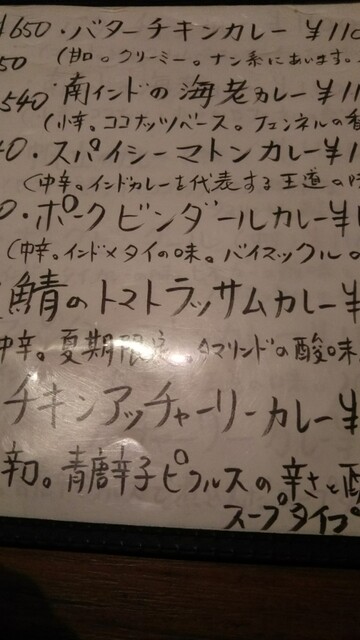 ¥650・バターチキンカレー ¥110
50 (甘口。クリーミー。ナン系にあいます。
540 南インドの海老カレー ¥11
(小辛。ココナッツベース。フェンネルの香
40・スパイシーマトンカレー ¥1
(中辛。インドカレーを代表する王道の味
0・ポークビンダールカレー ¥
(中辛。インド×タイの味。バイマックル。
鯖のトマトラッサムカレー ¥
中辛。夏期限定。タマリンドの酸味
チキンアッチャーリーカレー ¥
辛口。青唐辛子ピクルスの辛さと酸
スープタイプ